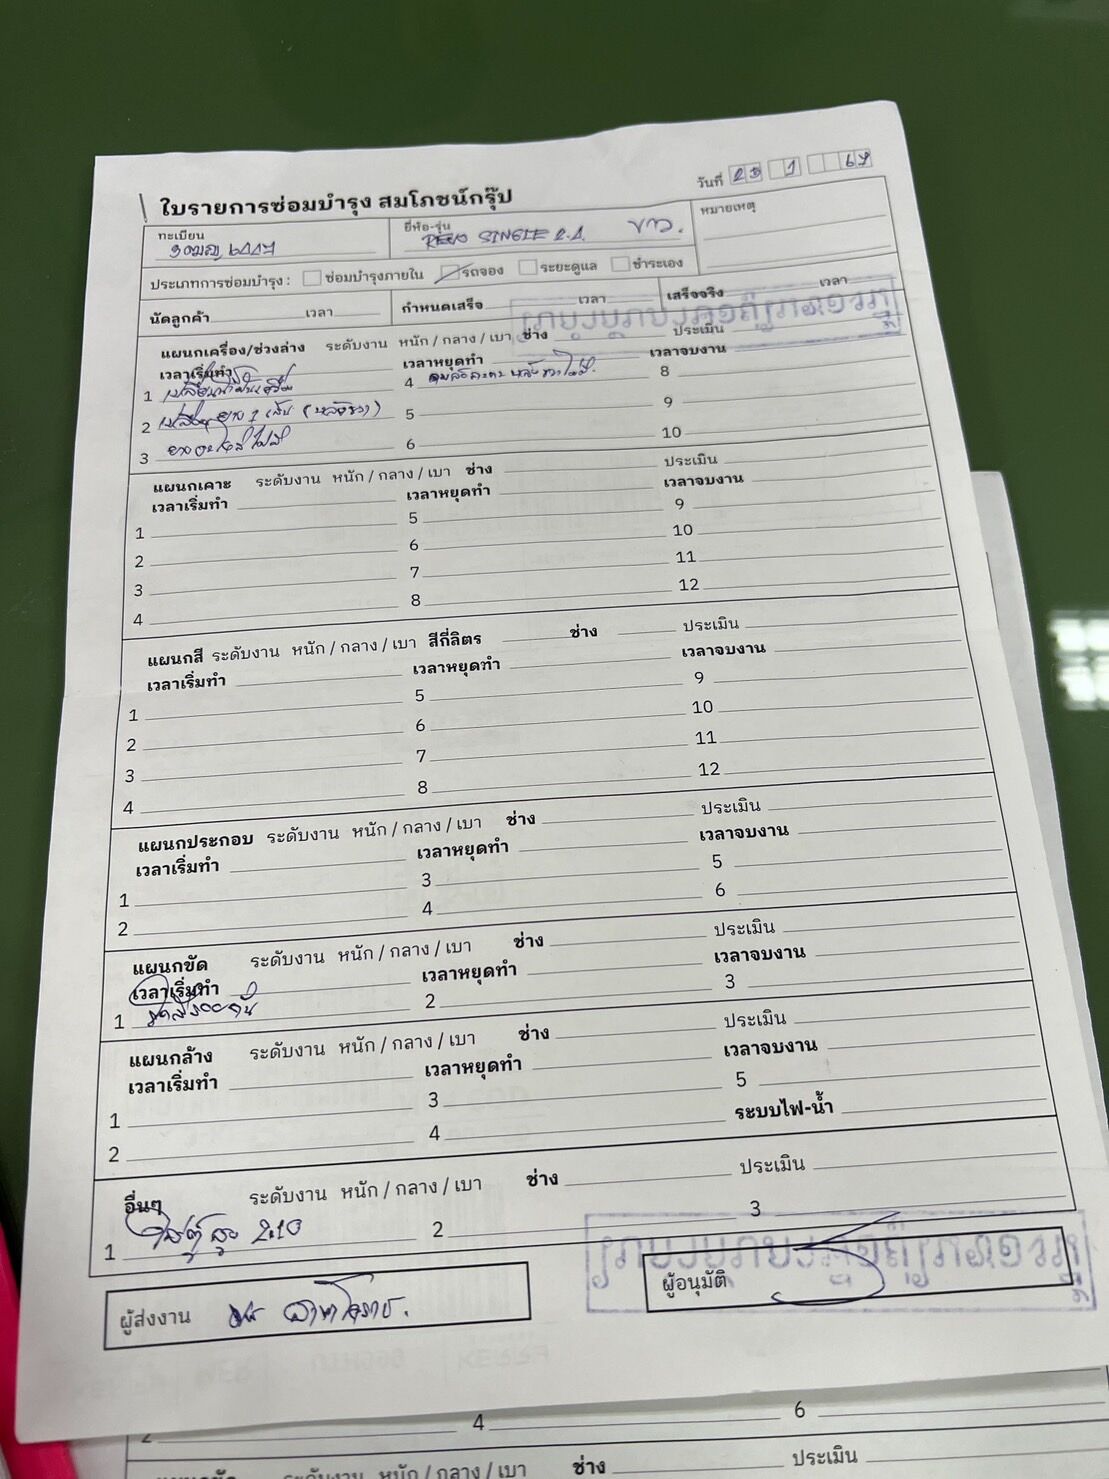 ใบรายการซ่อมบำรุง สมโภชน์กรุ๊ป
วันที่ 23 1 69
ทะเบียน
ยี่ห้อ-รุ่น REVO SINGLE 2.4 ขาว.
หมายเหตุ
ประเภทการซ่อมบำรุง : ซ่อมบำรุงภายใน รถจอง ระยะดูแล ชำระเอง
นัดลูกค้า เวลา กำหนดเสร็จ เวลา เสร็จจริง เวลา
แผนกเครื่อง/ช่วงล่าง ระดับงาน หนัก / กลาง / เบา ช่าง ประเมิน
เวลาเริ่มทำ เวลาหยุดทำ เวลาจบงาน
1 เปลี่ยนน้ำมันเครื่อง 4 8
2 เปลี่ยนยาง 1 เส้น (หลังขวา) 5 9
3 ยางอะไหล่ไม่มี 6 10
แผนกเคาะ ระดับงาน หนัก / กลาง / เบา ช่าง ประเมิน
เวลาเริ่มทำ เวลาหยุดทำ เวลาจบงาน
1 5 9
2 6 10
3 7 11
4 8 12
แผนกสี ระดับงาน หนัก / กลาง / เบา สีกี่ลิตร ช่าง ประเมิน
เวลาเริ่มทำ เวลาหยุดทำ เวลาจบงาน
1 5 9
2 6 10
3 7 11
4 8 12
แผนกประกอบ ระดับงาน หนัก / กลาง / เบา ช่าง ประเมิน
เวลาเริ่มทำ เวลาหยุดทำ เวลาจบงาน
1 3 5
2 4 6
แผนกขัด ระดับงาน หนัก / กลาง / เบา ช่าง ประเมิน
เวลาเริ่มทำ เวลาหยุดทำ เวลาจบงาน
1 ขัดสีรอบคัน 2 3
แผนกล้าง ระดับงาน หนัก / กลาง / เบา ช่าง ประเมิน
เวลาเริ่มทำ เวลาหยุดทำ เวลาจบงาน
1 3 5
2 4 ระบบไฟ-น้ำ
อื่นๆ ระดับงาน หนัก / กลาง / เบา ช่าง ประเมิน
1 ใส่ตู้สูง 2.10 2 3
ผู้ส่งงาน สาขาโคราช.
ผู้อนุมัติ
2 4 6
แผนกขัด ระดับงาน หนัก / กลาง / เบา ช่าง ประเมิน